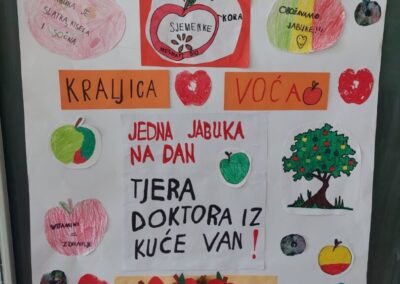 JABUKA JE
SLATKA KISELA
I SOČNA
SJEMENKE
KORA
OBOŽAVAMO
JABUKE!!!
KRALJICA
VOĆA
JEDNA JABUKA
NA DAN
TJERA
DOKTORA IZ
KUĆE VAN!
VITAMINI
=
ZDRAVLJE